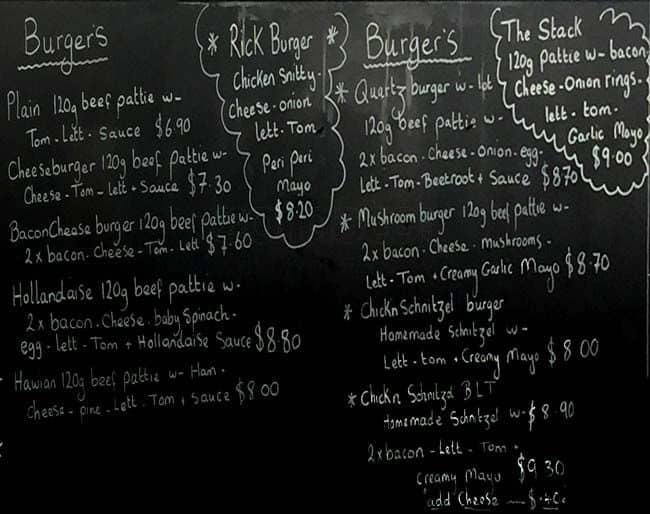 Burger's
Plain 120g beef pattie w-
Tom-Lett-Sauce $6.90
Cheeseburger 120g beef pattie w-
Cheese-Tom-Lett + Sauce $7.30
BaconCheese burger 120g beef pattie w-
2 x bacon-Cheese-Tom-Lett $7.60
Hollandaise 120g beef pattie w-
2 x bacon-Cheese-baby Spinach-
egg-lett-Tom + Hollandaise Sauce $8.80
Hawian 120g beef pattie w- Ham-
Cheese-pine-Lett-Tom + Sauce $8.00
* Rick Burger *
Chicken Snitty-
cheese-onion
lett-Tom
Peri Peri
Mayo
$8.20
Burger's
* Quartz burger w- lot
120g beef pattie w-
2 x bacon-Cheese-Onion-egg-
Lett-Tom-Beetroot + Sauce $8.70
* Mushroom burger 120g beef pattie w-
2 x bacon-Cheese-Mushrooms-
Lett-Tom + Creamy Garlic Mayo $8.70
* Chickn Schnitzel burger
Homemade Schnitzel w-
Lett-tom + Creamy Mayo $8.00
* Chickn Schnitzel BLT
Homemade Schnitzel w- $8.90
2 x bacon-Lett-Tom-
Creamy Mayo $9.30
add Cheese
The Stack
120g Pattie w- bacon
Cheese-Onion rings-
lett-tom-
Garlic Mayo
$9.00